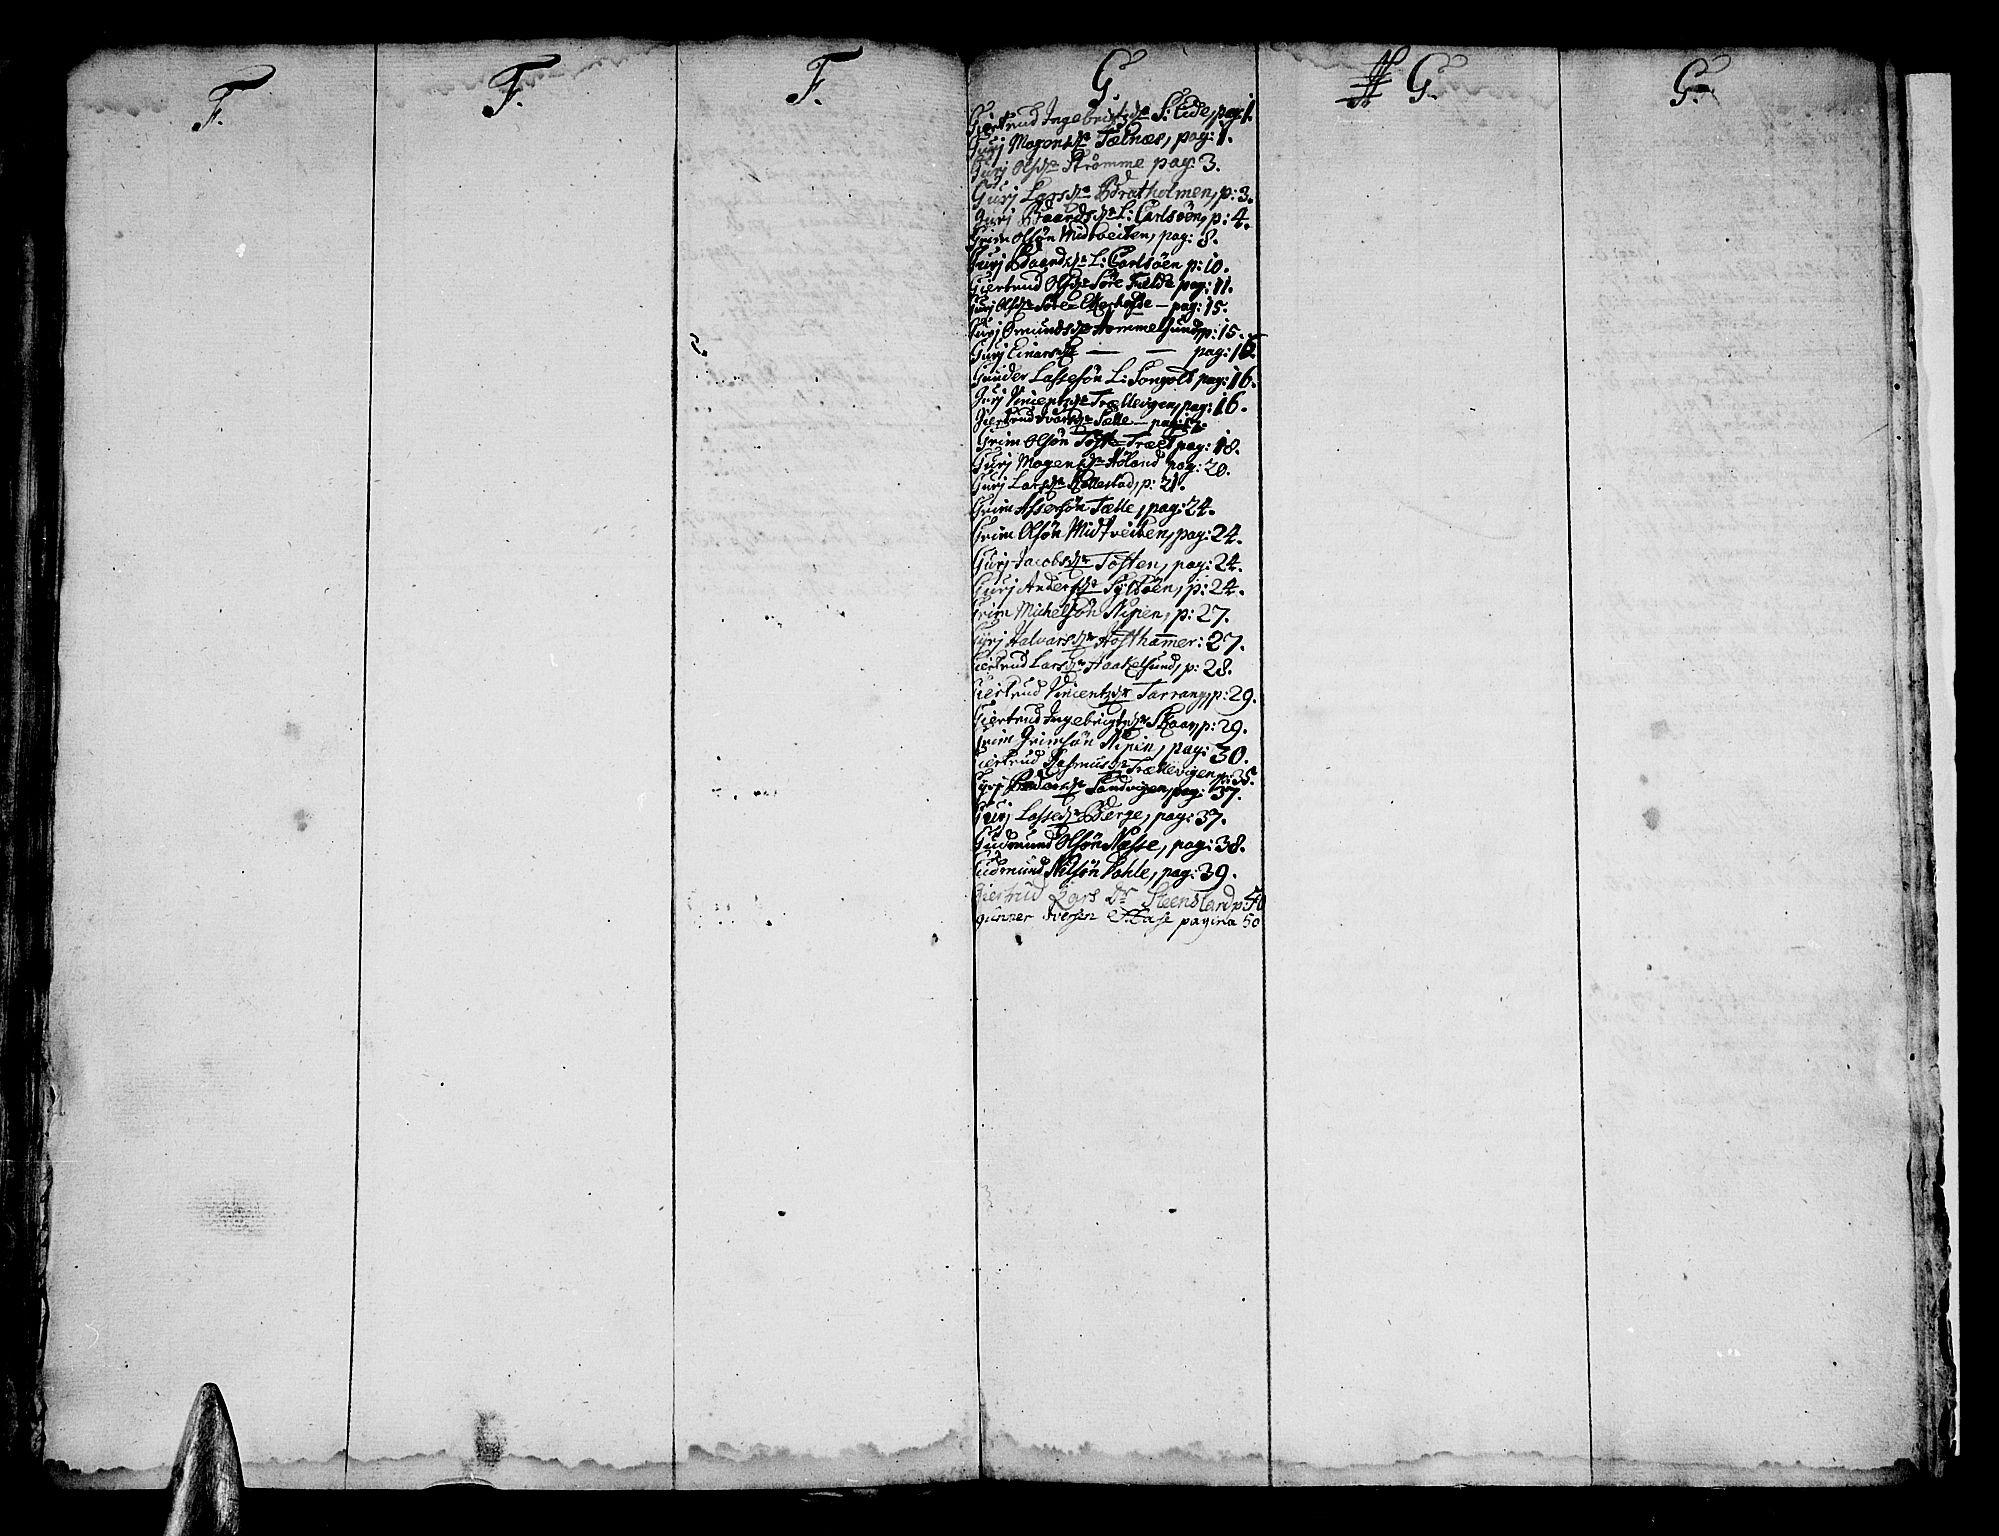 F.
F.
F.
G
G.
G.
Giertrud Ingebrigtsdr S: Eide, pag: 1.
Gurj Mogensdr Telnæs, pag: 1.
Gurj Olsdr Strømme pag: 3.
Gurj Larsdr Bratholmen, p: 3.
Gurj Baardsdr L: Carlsöen, p: 4.
Grim Olsön Midtveiten, pag: 8.
Gurj Baardsdr L: Carlsöen p: 10.
Giertrud Olsdr Söre Fielde pag: 11.
Gurj Olsdr Söre pag: 15.
Gurj Omundsdr Hommelsund, p: 15.
Gurj Einarsdr — — pag: 16.
Gunder Lassesön L: Songolt pag: 16.
Gurj Vincentzdr Trællevigen, pag: 16.
Giertrud Ivarsdr Tælle — pag: 17.
Grim Olsön Tofte Træet pag: 18.
Gurj Mogensdr Höland pag: 20.
Gurj Larsdr Kallestad, p: 21.
Grim Assersön Tælle, pag: 24.
Grim Olsön Midtveiten, pag: 24.
Gurj Jacobsdr Toften, pag: 24.
Gurj Andersdr Syltöen, p: 24.
Grim Michelsön Nipen, p: 27.
Gyrj Halvarsdr Hosthamer: 27.
Giertrud Larsdr Haakelsund, p: 28.
Giertrud Vincentzdr Tarrang, p: 29.
Giertrud Ingebrigtsdr Skaar, p: 29.
Grim Grimsön Nipen, pag: 30.
Giertrud Rasmusdr Trællevigen, p: 35.
Gyrj Pedersdr Sandvigen, pag: 37.
Gurj Lassedr Berge, pag: 37.
Gudmund Olsön Næsse, pag: 38.
Gudmund Nilsön Pahle, pag: 39.
Giertrud Lars Dr Steensland p 40
gunner Iversen pagina 50